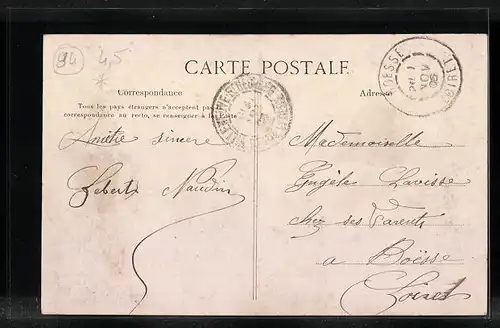 94 4,5
*
CARTE POSTALE
Correspondance
Adresse
Tous les pays étrangers n'acceptent pas la
correspondance au recto, se renseigner à la Poste
BOESSE
LOIRET
Amitié sincère
Naudin
Mademoiselle
Angèle Lavisse
chez ses Parents
a Boësse
Loiret